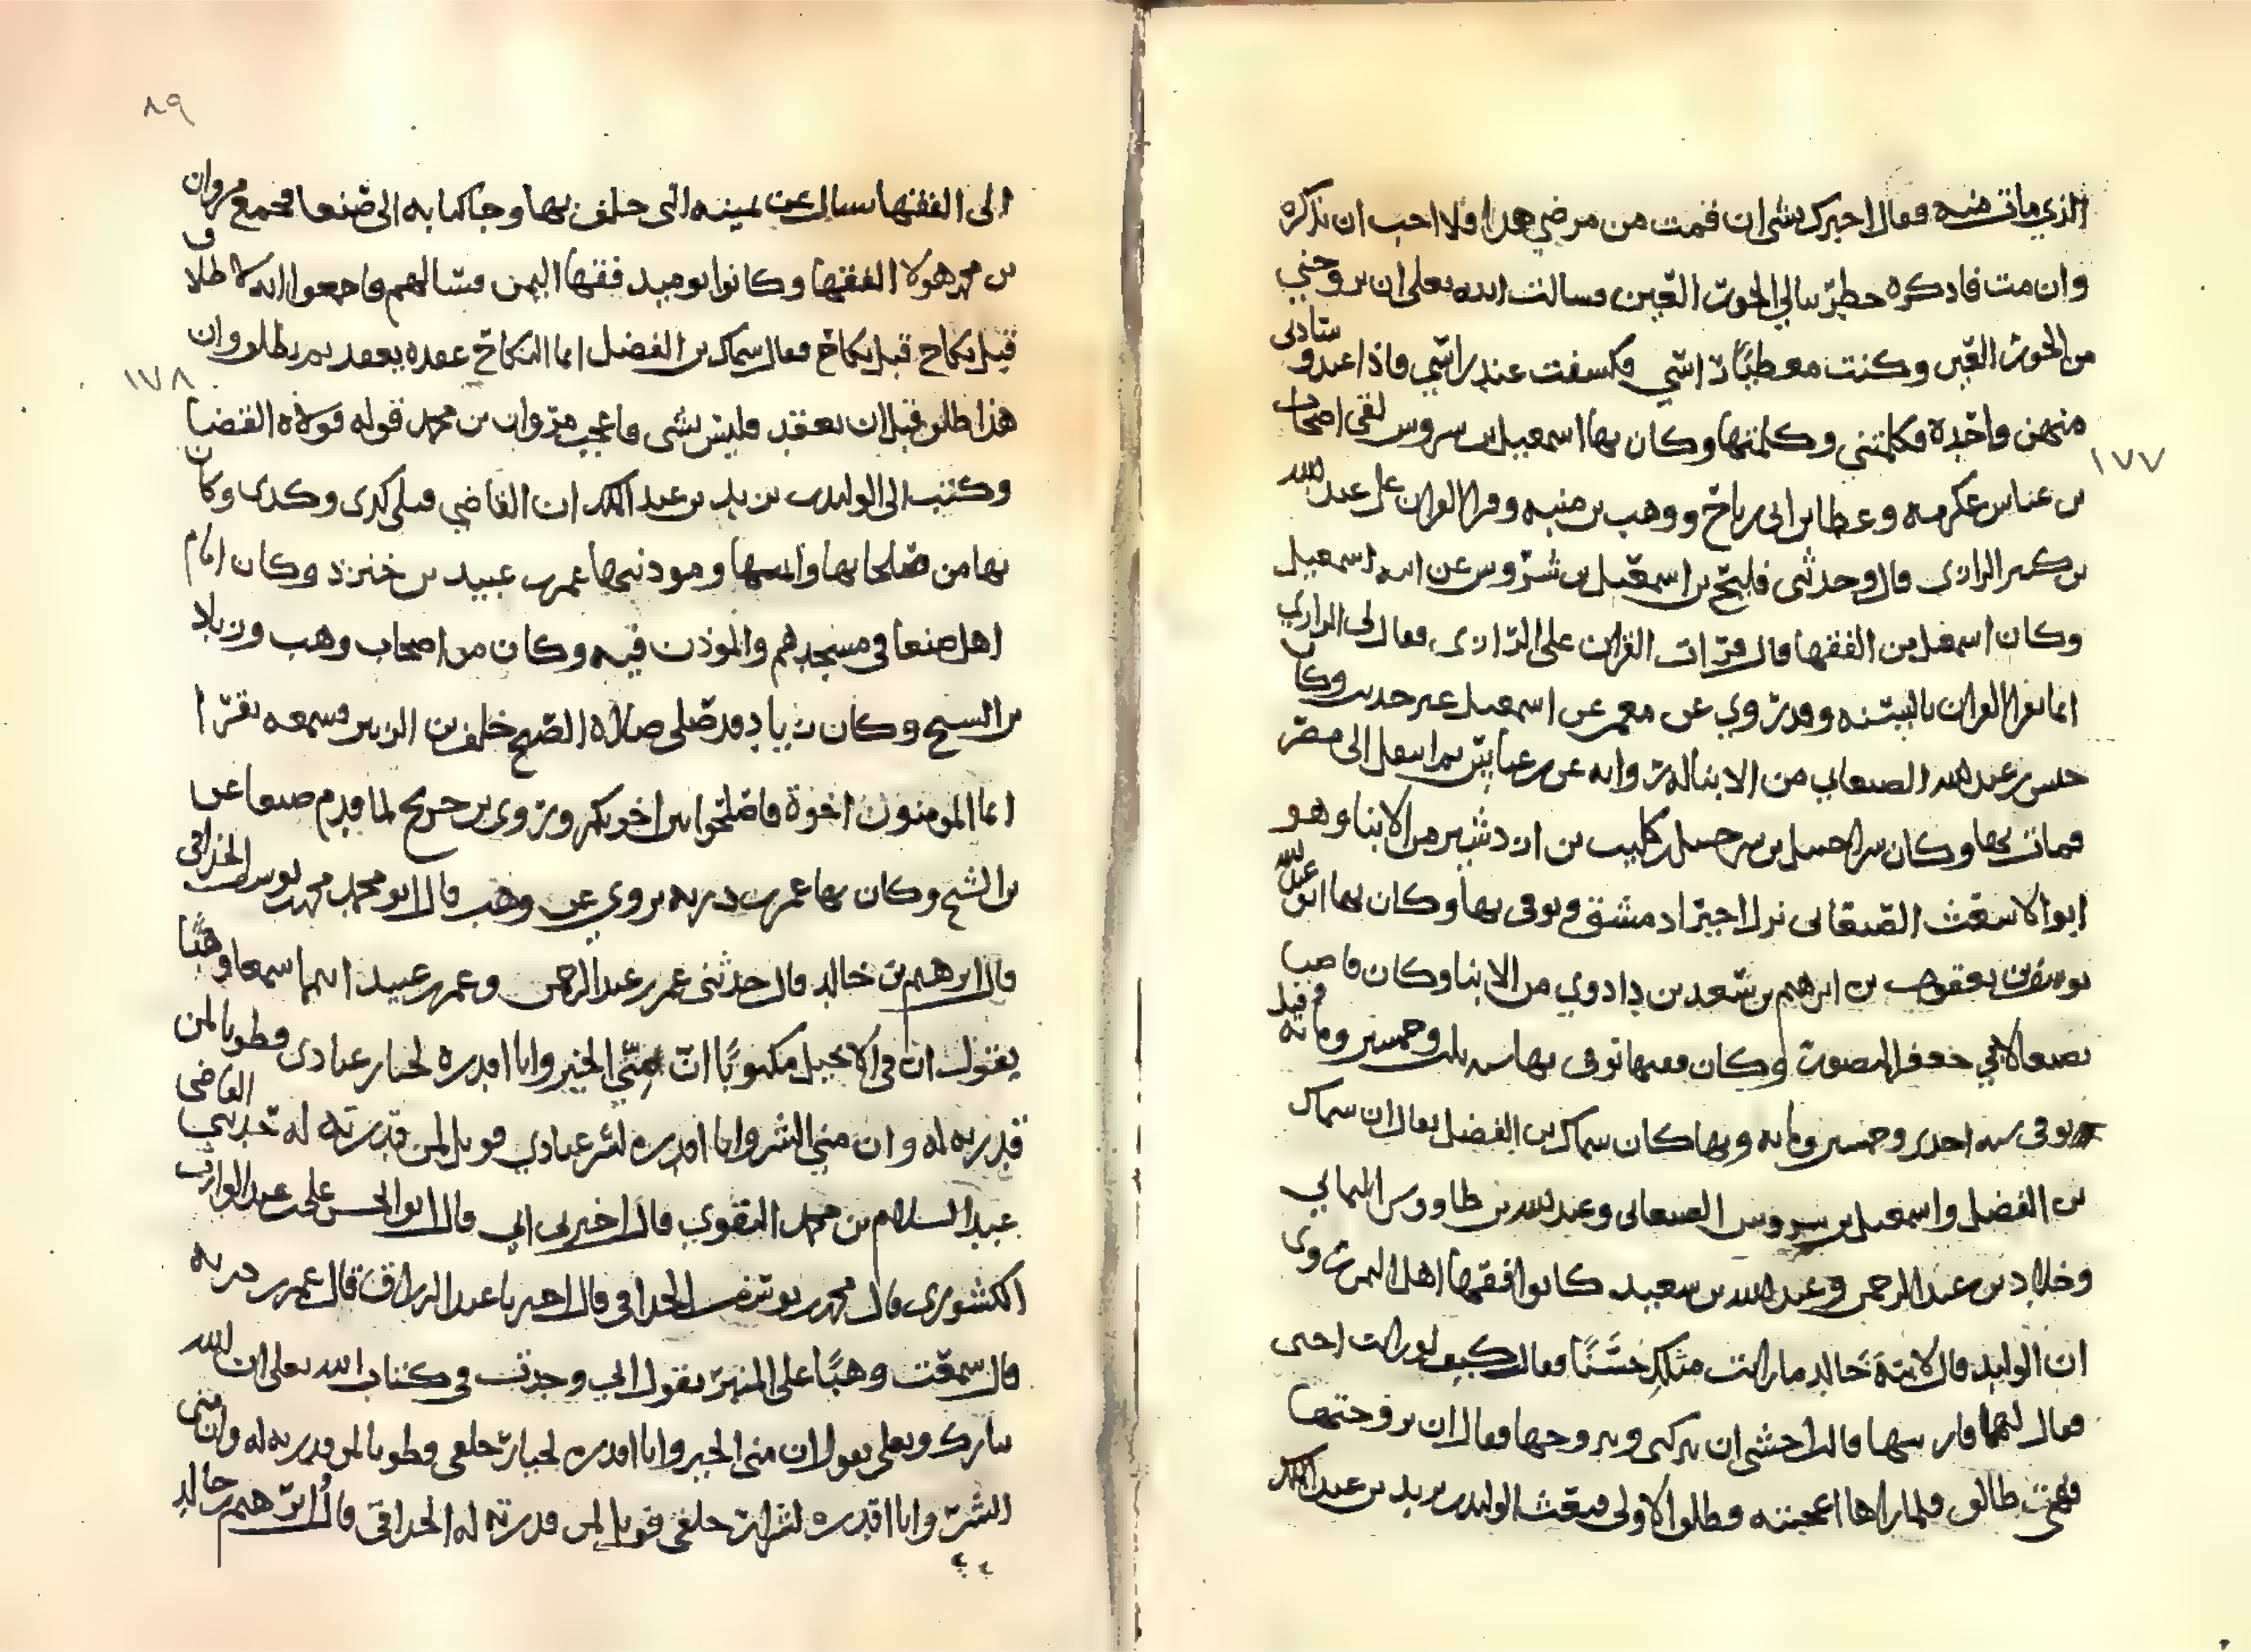 الذي مات فيه فقال اخبرك بشي ان قمت من مرضي هذا فلا احب ان تذكره
وان مت فاذكره خطر ببالي الحور العين فسالت الله تعلى ان يزوجني
من الحور العين وكنت مغطيا راسي فكشفت عن راسي فاذا عند وسادتي
منهن واحدة فكلمتني وكلمتها وكان بها اسمعيل بن سروس لقي اصحاب
بن عباس عكرمه وعطا بن ابي رباح ووهب بن منبه وقرا القران على عبد الله
بن كثير الرازي قال وحدثني فليح بن اسمعيل بن شروس عن ابيه اسمعيل
وكان اسمعيل من الفقها قال قرات القران على الرازي فقال لي الرازي
انما نقرا القران بالسنه وقد روي عن معمر عن اسمعيل غير حديث وكان
حنش بن عبد الله الصنعاني من الابنا له روايه عن بن عباس ثم انتقل الى مصر
فمات بها وكان شراحيل بن شرحبيل بن كليب بن ازدشير من الابنا وهو
ابو الاشعث الصنعاني نزل اخيرا دمشق وتوفي بها وكان بها ابو عبد الله
يوسف بن يعقوب بن ابرهيم بن سعد بن داذوي من الابنا وكان قاضيا
بصنعا لابي جعفر المنصور وكان فقيها توفي بها سنه ثلث وخمسين ومائه وقيل
توفي سنه احدى وخمسين ومايه وبها كان سماك بن الفضل يقال ان سماك
بن الفضل واسمعيل بن سروس الصنعاني وعبد الله بن طاووس اليماني
وخلاد بن عبد الرحمن وعبد الله بن سعيد كانوا فقها اهل اليمن روى
ان الوليد قال لابنة خالد ما رايت مثلك حسنا فقالت كيف لو رايت اختي
فقال لها فارينيها قالت اخشى ان تتركني وتتزوجها فقال ان تزوجتها
فهي طالق فلما راها اعجبته وطلق الاولى فبعث الوليد بن يزيد بن عبد الملك
٨٩
الى الفقها يسال عن يمينه التي حلف بها وجا كتابه الى صنعا فجمع مروان
بن محمد هولا الفقها وكانوا يوميد فقها اليمن فسالهم فاجمعوا انه لا طلاق
قبل نكاح قبل نكاح فقال سماك بن الفضل انما النكاح عقده يعقد ثم يطلق وان
هذا طلق قبل ان يعقد فليس بشي فاعجب مروان بن محمد قوله فولاه القضا
وكتب الى الوليد بن يزيد بن عبد الملك ان القاضي قبلي كدى وكدى وكان
بها من صلحابها ومودنيها عمر بن عبيد بن خنزد وكان امام
اهل صنعا في مسجدهم والموذن فيه وكان من اصحاب وهب وزياد
بن الشيخ وكان زياد قد صلى صلاة الصبح خلف بن الزبير فسمعه يقرا
انما المومنون اخوة فاصلحوا بين اخويكم وروى بن جريج لما قدم صنعا عن
بن الشيخ وكان بها عمر بن دريه يروي عن وهب قال ابو محمد محمد بن يوسف الحذاقي
قال ابرهيم بن خالد قال حدثني عمر بن عبد الرحمن وعمر بن عبيد انهما سمعا وهبا
يقول ان في الانجيل مكتوبا ان مني الخير وانا اقدره لخيار عبادي فطوبا لمن
قدرته له وان مني الشر وانا اقدره لشر عبادي فويل لمن قدرته له حدثني القاضي
عبد السلام بن محمد النقوي قال اخبرني ابي قال ابو الحسن علي بن عبد الوارث
الكشوري قال محمد بن يوسف الحذاقي قال اخبرنا عبد الرزاق قال عمر بن دريه
قال سمعت وهبا على المنبر يقول اني وجدت في كتاب الله تعلى ان الله
تبارك وتعلى يقول ان مني الخير وانا اقدره لخيار خلقي فطوبا لمن قدرته له وان مني
الشر وانا اقدره لشرار خلقي فويل لمن قدرته له الحذاقي قال ابرهيم بن خالد
١٧٧
١٧٨